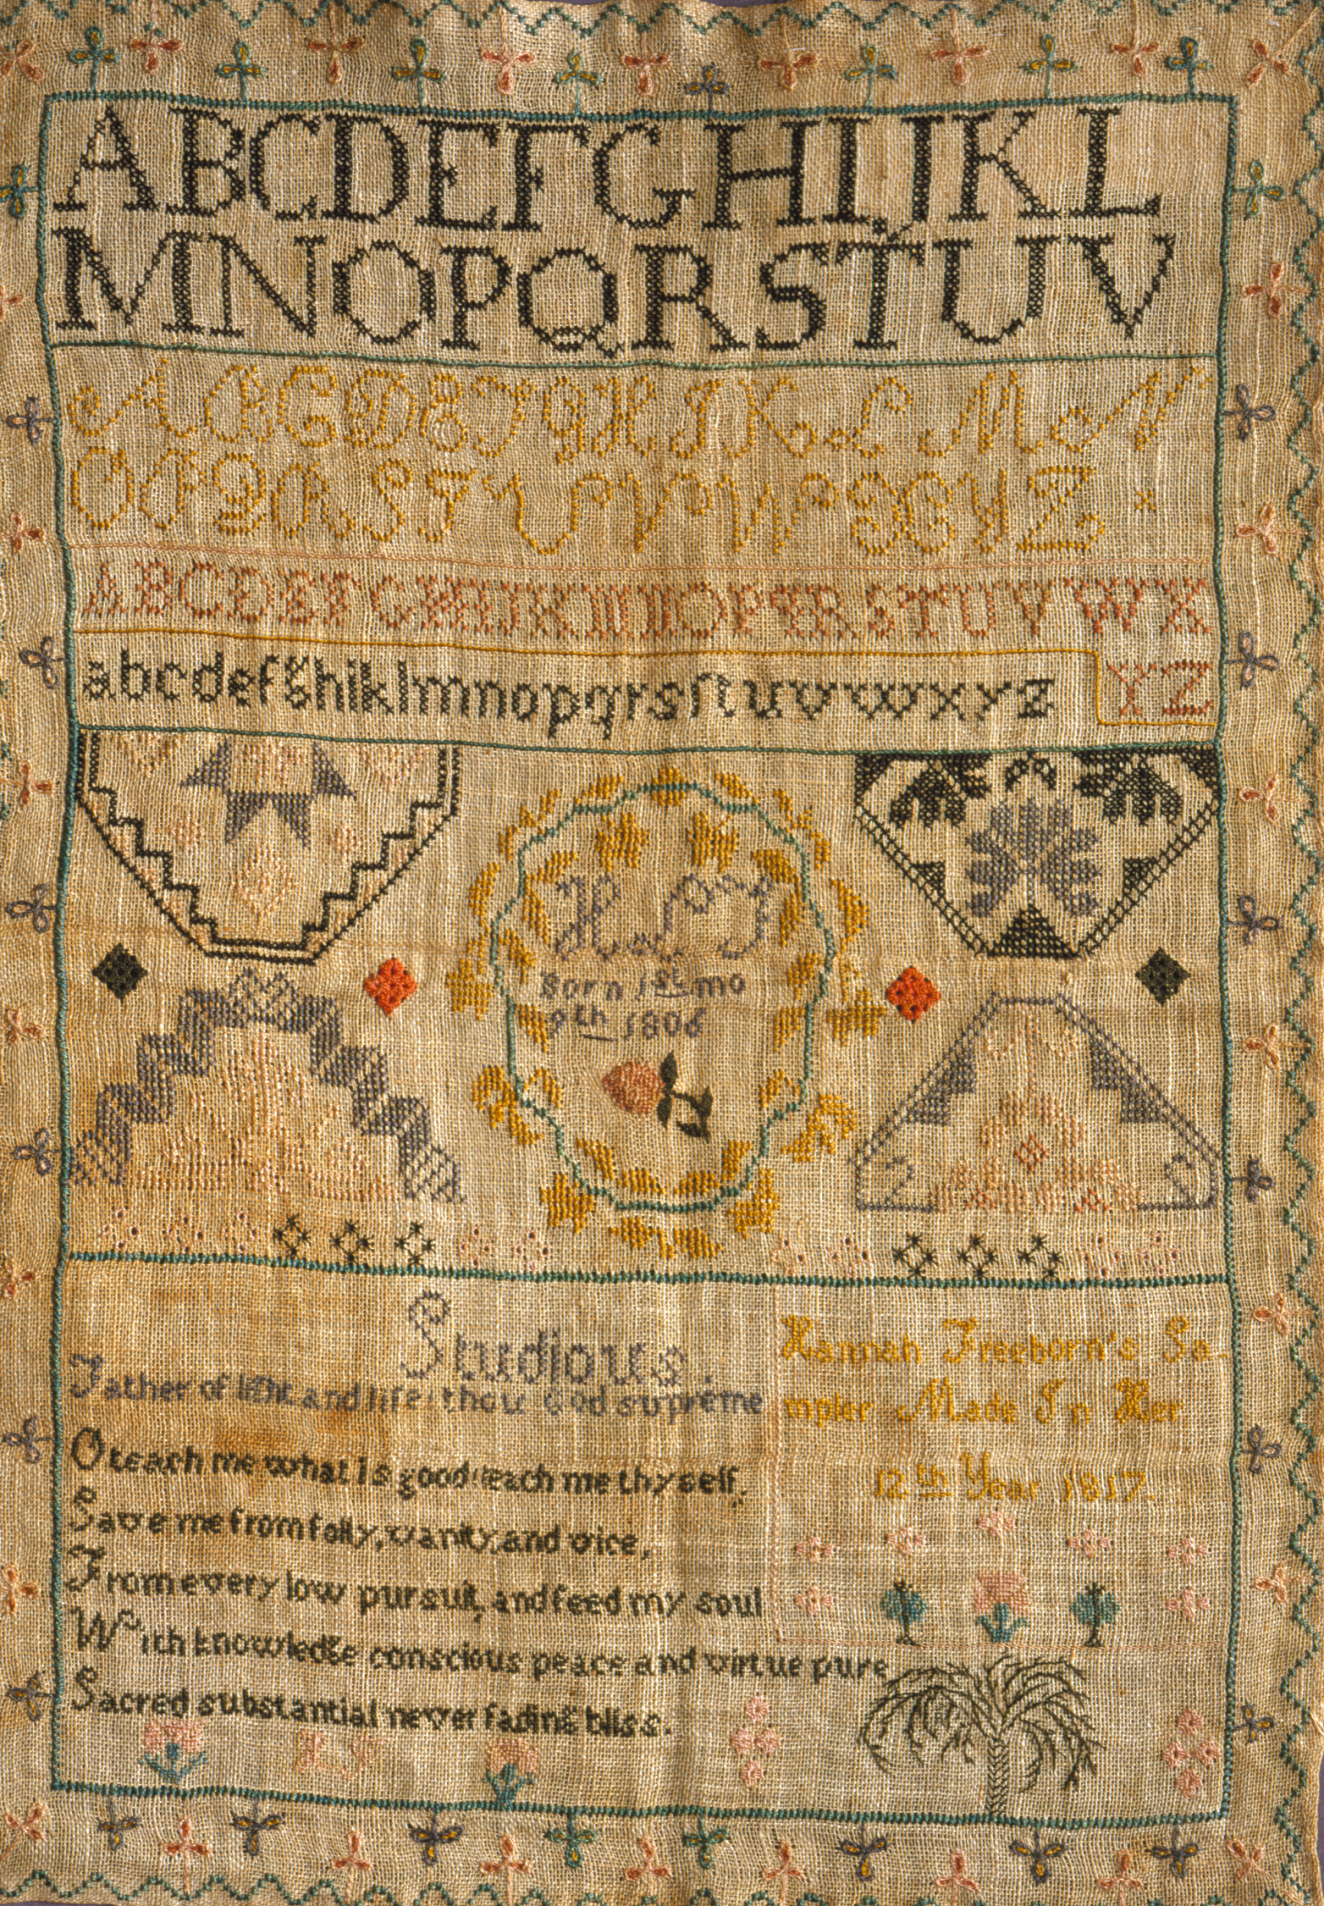 ABCDEFGHIJKL
MNOPQRSTUV
ABCDEFGHIKLMN
OPQRSTUVWXYZ
ABCDEFGHIJKMNOPQRSTUVWX
YZ
abcdefghiklmnopqrsſtuvwxyz
H F
Born 1st mo
9th 1806
Studious.
Father of light and life! thou God supreme
O teach me what is good teach me thyself.
Save me from folly, vanity, and vice,
From every low pursuit, and feed my soul
With knowledge conscious peace and virtue pure
Sacred substantial never fading bliss.
Hannah Freeborn's Sa
mpler Made In Her
12th Year 1817.